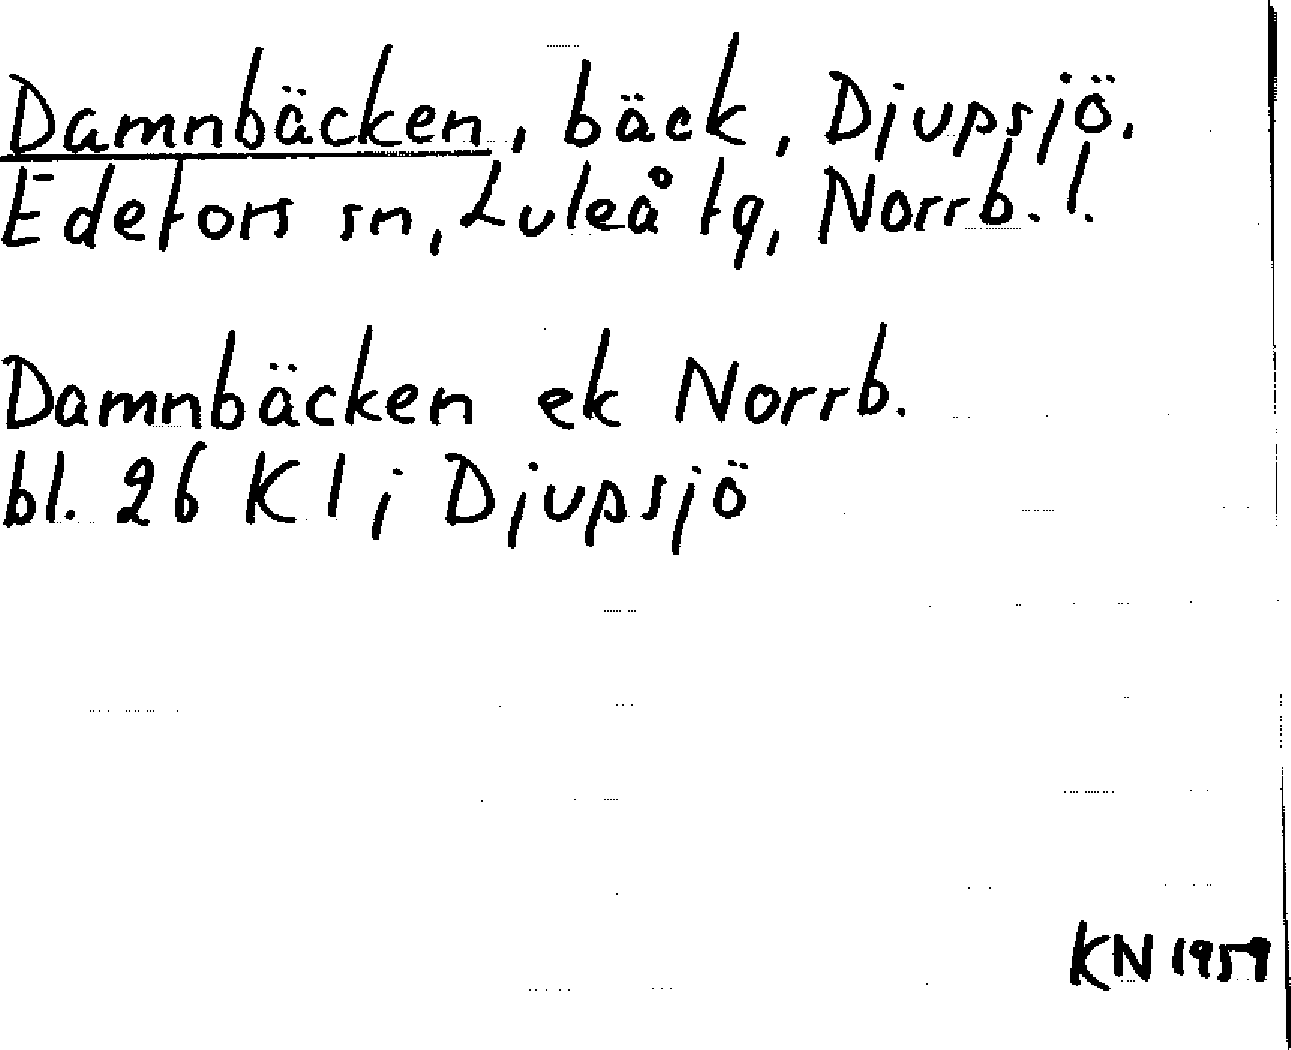 Damnbäcken, bäck, Djupsjö.
Edefors sn, Luleå tg, Norrb. l.
Damnbäcken ek Norrb.
bl. 26 K l i Djupsjö
KN 1959